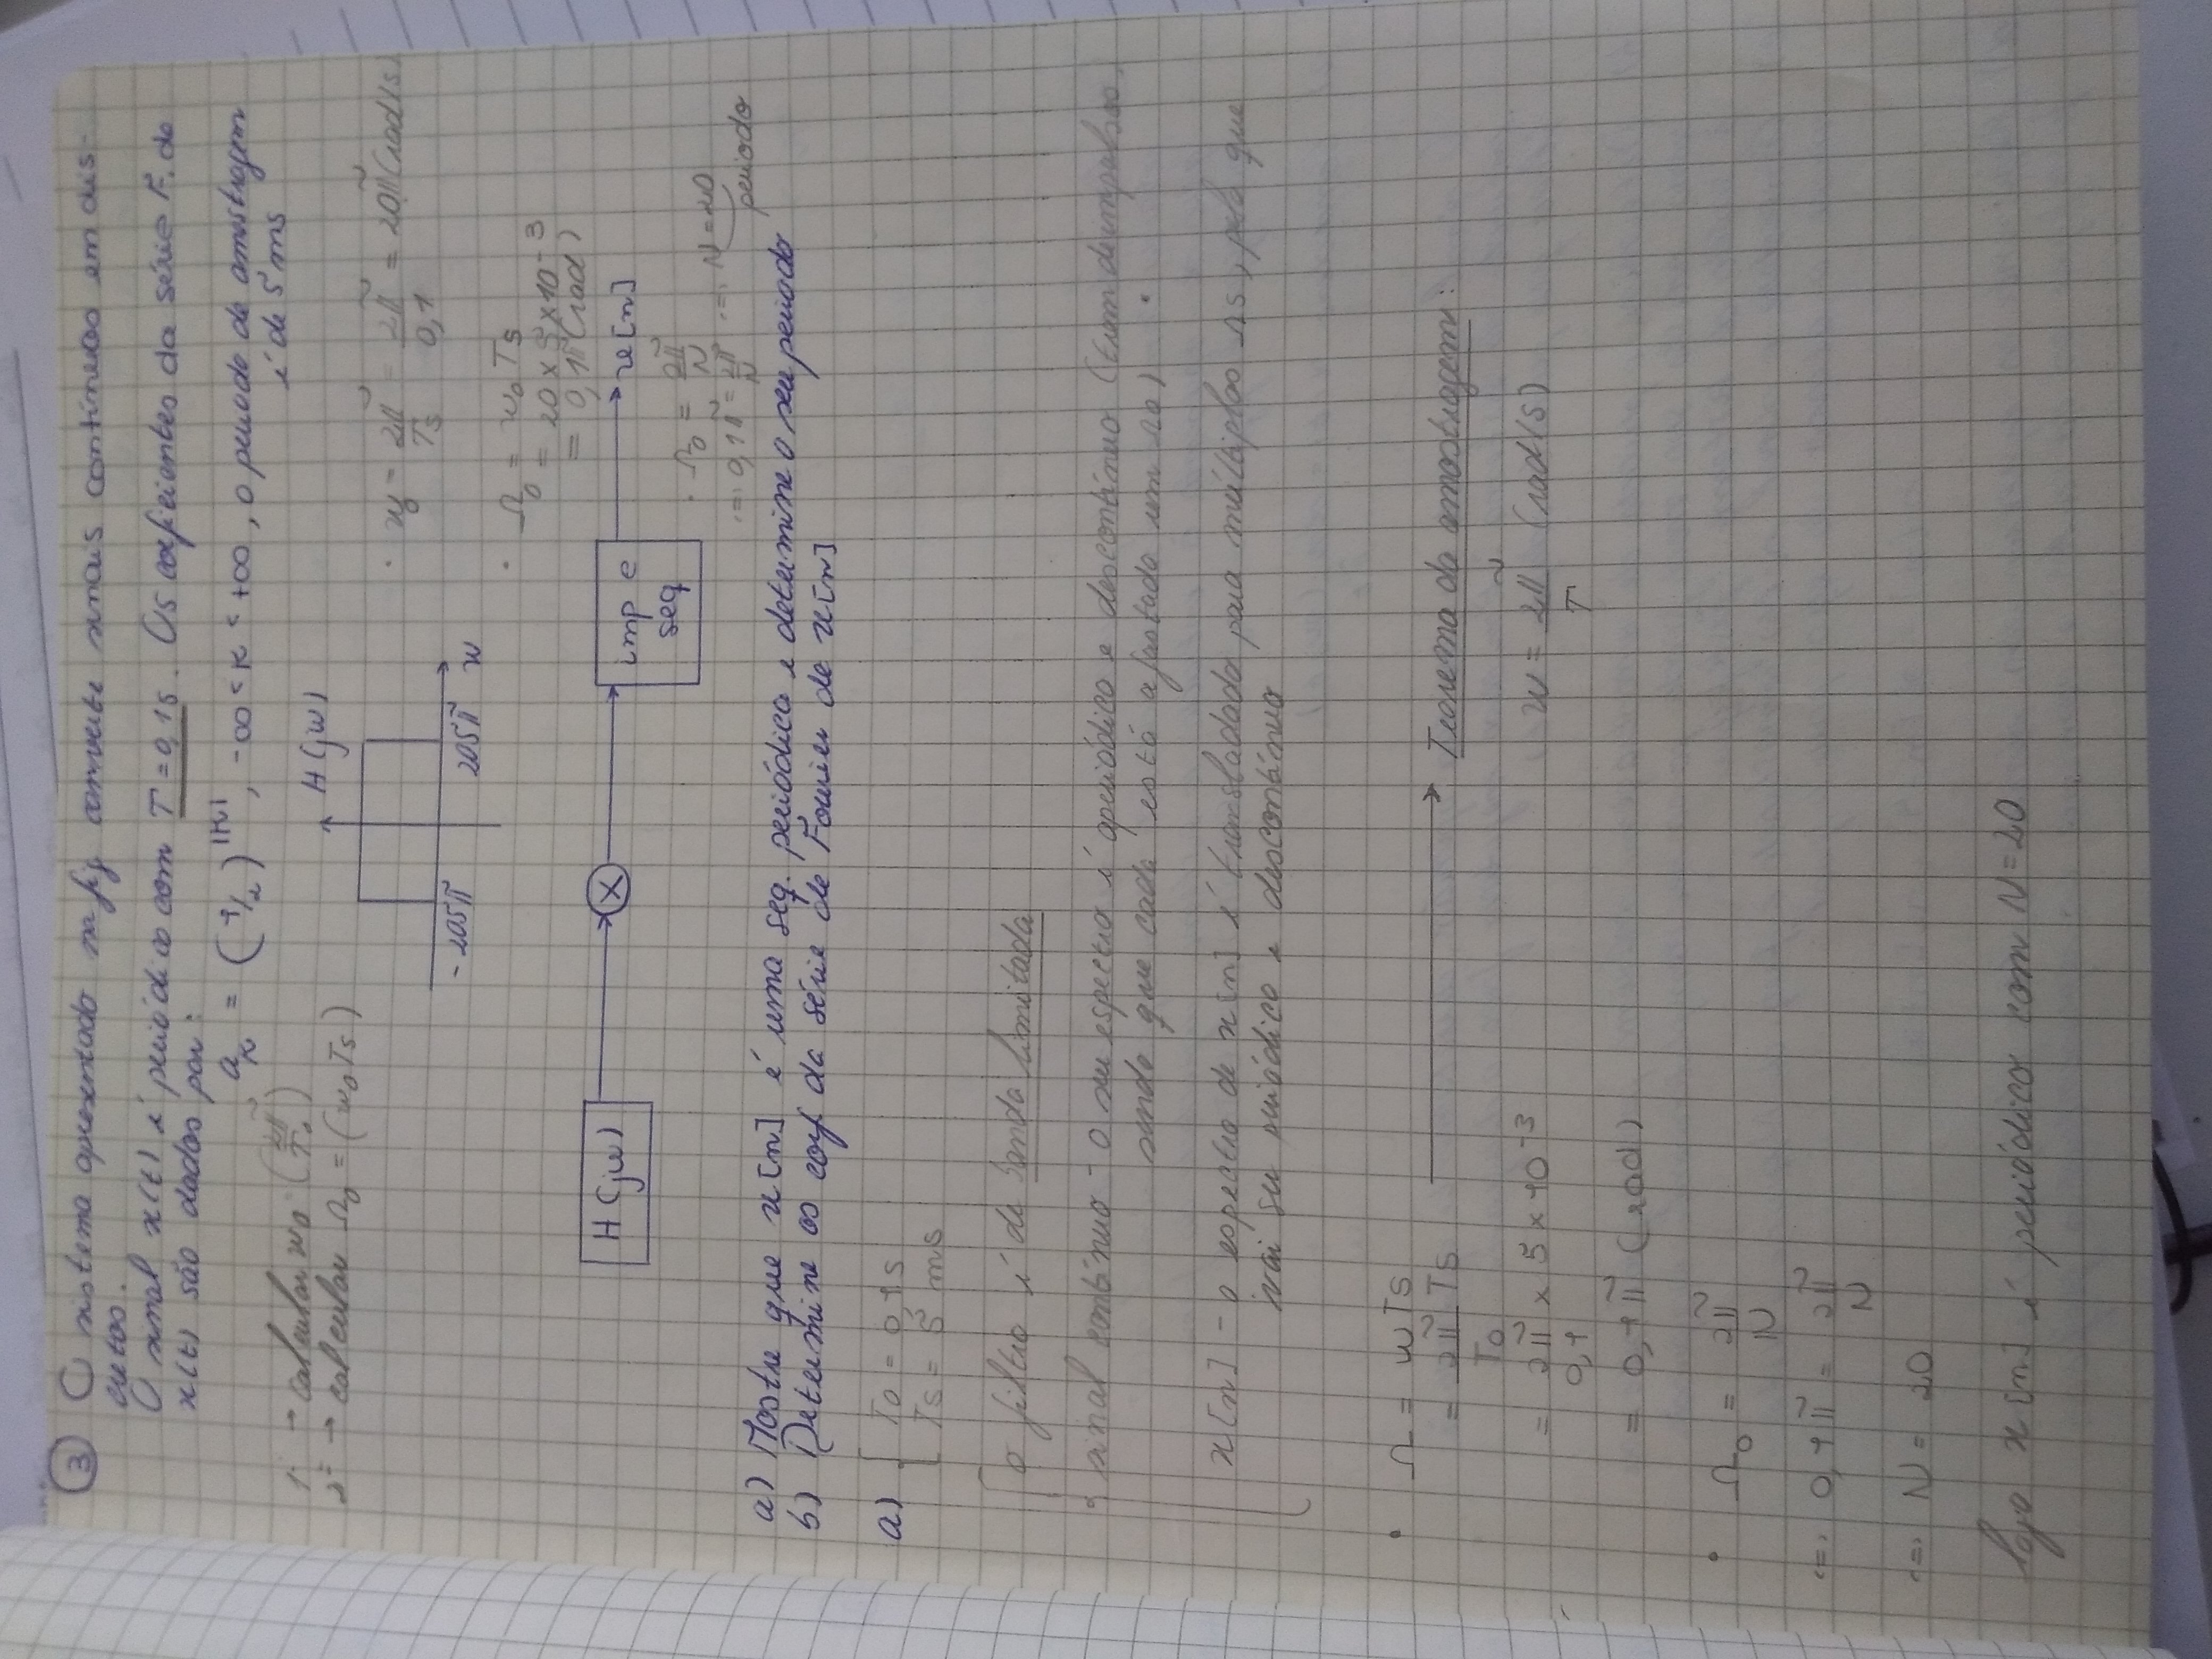 3 O sistema apresentado na fig converte sinais contínuos em dis-
cretos.
O sinal x(t) é periódico com T = 0,1s. Os coeficientes da série F. de
x(t) são dados por:
a_k = (1/2)^|k|, -∞ < k < +∞, o periodo de amostragem
é de 5 ms
1º → calcular w0 (2π/T0)
2º → calcular Ω0 = (w0 Ts)
H(jw)
-205π 205π w
• w0 = 2π/Ts = 2π/0,1 = 20π (rad/s)
• Ω0 = w0 Ts
= 20 × 5 × 10^-3
= 0,1π (rad)
H(jw) X imp e seq x[n]
• Ω0 = 2π/N
<=> 0,1π = 2π/N <=> N = 20
periodo
a) Mostre que x[n] é uma seq. periódica e determine o seu periodo
b) Determine os coef. da série de Fourier de x[n]
a) T0 = 0,1s
Ts = 5 ms
o filtro é de banda limitada
• sinal contínuo - o seu espectro é aperiódico e descontínuo (trem de impulsos,
sendo que cada está afastado um Ω0)
x[n] - o espectro de x[n] é transladado para múltiplos Ωs, pelo que
vai ser periódico e descontínuo
• Ω = wTs
= 2π/T0 Ts → Teorema da amostragem:
= 2π/0,1 × 5 × 10^-3 w = 2π/T (rad/s)
= 0,1π (rad)
• Ω0 = 2π/N
<=> 0,1π = 2π/N
<=> N = 20
logo x[n] é periódico com N = 20